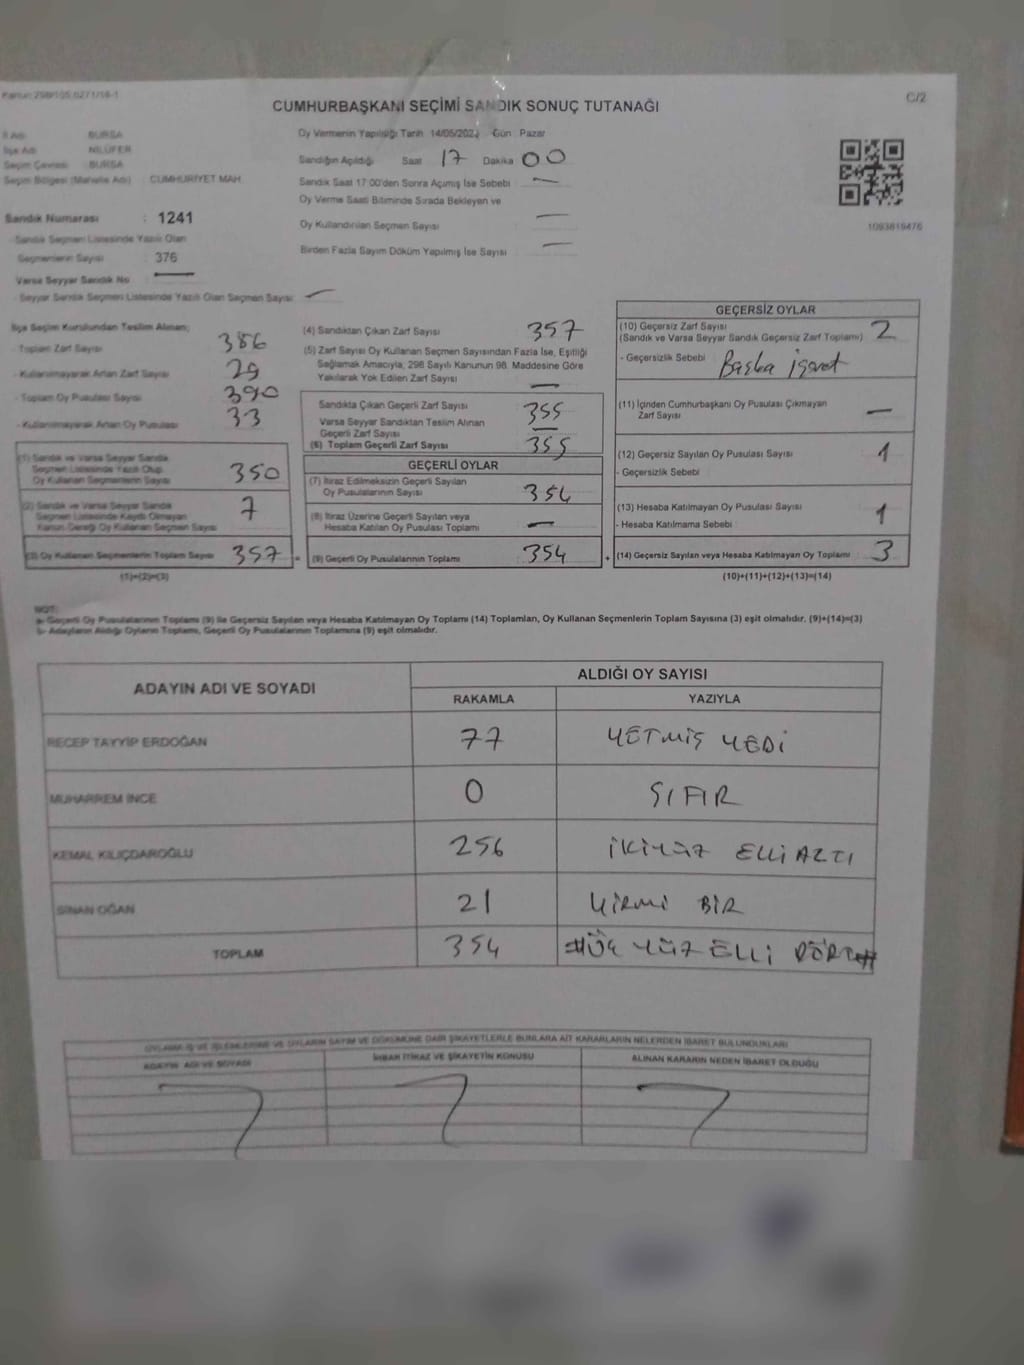 Kanun:298/105,6271/16-1
C/2
CUMHURBAŞKANI SEÇİMİ SANDIK SONUÇ TUTANAĞI
İl Adı : BURSA
İlçe Adı : NİLÜFER
Seçim Çevresi : BURSA
Seçim Bölgesi (Mahalle Adı) CUMHURİYET MAH.
Sandık Numarası : 1241
- Sandık Seçmen Listesinde Yazılı Olan
Seçmenlerin Sayısı : 376
Varsa Seyyar Sandık No : —
- Seyyar Sandık Seçmen Listesinde Yazılı Olan Seçmen Sayısı : —
Oy Vermenin Yapıldığı Tarih 14/05/2023 Gün : Pazar
Sandığın Açıldığı Saat 17 Dakika 00
Sandık Saat 17:00'den Sonra Açımış İse Sebebi : —
Oy Verme Saati Bitiminde Sırada Bekleyen ve
Oy Kullandırılan Seçmen Sayısı : —
Birden Fazla Sayım Döküm Yapılmış İse Sayısı : —
1093819476
İlçe Seçim Kurulundan Teslim Alınan;
- Toplam Zarf Sayısı : 386
- Kullanılmayarak Artan Zarf Sayısı : 29
- Toplam Oy Pusulası Sayısı : 390
- Kullanılmayarak Artan Oy Pusulası : 33
(1) Sandık ve Varsa Seyyar Sandık
Seçmen Listesinde Yazılı Olup
Oy Kullanan Seçmenlerin Sayısı 350
(2) Sandık ve Varsa Seyyar Sandık
Seçmen Listesinde Kaydı Olmayan
Kanun Gereği Oy Kullanan Seçmen Sayısı 7
(3) Oy Kullanan Seçmenlerin Toplam Sayısı 357 =
(1)+(2)=(3)
(4) Sandıktan Çıkan Zarf Sayısı 357
(5) Zarf Sayısı Oy Kullanan Seçmen Sayısından Fazla İse, Eşitliği
Sağlamak Amacıyla, 298 Sayılı Kanunun 98. Maddesine Göre
Yakılarak Yok Edilen Zarf Sayısı —
Sandıkta Çıkan Geçerli Zarf Sayısı 355
Varsa Seyyar Sandıktan Teslim Alınan
Geçerli Zarf Sayısı —
(6) Toplam Geçerli Zarf Sayısı 355
GEÇERLİ OYLAR
(7) İtiraz Edilmeksizin Geçerli Sayılan
Oy Pusulalarının Sayısı 354
(8) İtiraz Üzerine Geçerli Sayılan veya
Hesaba Katılan Oy Pusulası Toplamı —
(9) Geçerli Oy Pusulalarının Toplamı 354 +
GEÇERSİZ OYLAR
(10) Geçersiz Zarf Sayısı
(Sandık ve Varsa Seyyar Sandık Geçersiz Zarf Toplamı) 2
- Geçersizlik Sebebi : Başka işaret
(11) İçinden Cumhurbaşkanı Oy Pusulası Çıkmayan
Zarf Sayısı —
(12) Geçersiz Sayılan Oy Pusulası Sayısı 1
- Geçersizlik Sebebi :
(13) Hesaba Katılmayan Oy Pusulası Sayısı 1
- Hesaba Katılmama Sebebi :
(14) Geçersiz Sayılan veya Hesaba Katılmayan Oy Toplamı 3
(10)+(11)+(12)+(13)=(14)
NOT:
a- Geçerli Oy Pusulalarının Toplamı (9) ile Geçersiz Sayılan veya Hesaba Katılmayan Oy Toplamı (14) Toplamları, Oy Kullanan Seçmenlerin Toplam Sayısına (3) eşit olmalıdır. (9)+(14)=(3)
b- Adayların Aldığı Oyların Toplamı, Geçerli Oy Pusulalarının Toplamına (9) eşit olmalıdır.
ADAYIN ADI VE SOYADI
ALDIĞI OY SAYISI
RAKAMLA YAZIYLA
RECEP TAYYİP ERDOĞAN 77 YETMİŞ YEDİ
MUHARREM İNCE 0 SIFIR
KEMAL KILIÇDAROĞLU 256 İKİYÜZ ELLİ ALTI
SİNAN OĞAN 21 YİRMİ BİR
TOPLAM 354 #ÜÇ YÜZ ELLİ DÖRT#
OYLAMA İŞ VE İŞLEMLERİNE VE OYLARIN SAYIM VE DÖKÜMÜNE DAİR ŞİKAYETLERLE BUNLARA AİT KARARLARIN NELERDEN İBARET BULUNDUKLARI
ADAYIN ADI VE SOYADI
İHBAR İTİRAZ VE ŞİKAYETİN KONUSU
ALINAN KARARIN NEDEN İBARET OLDUĞU